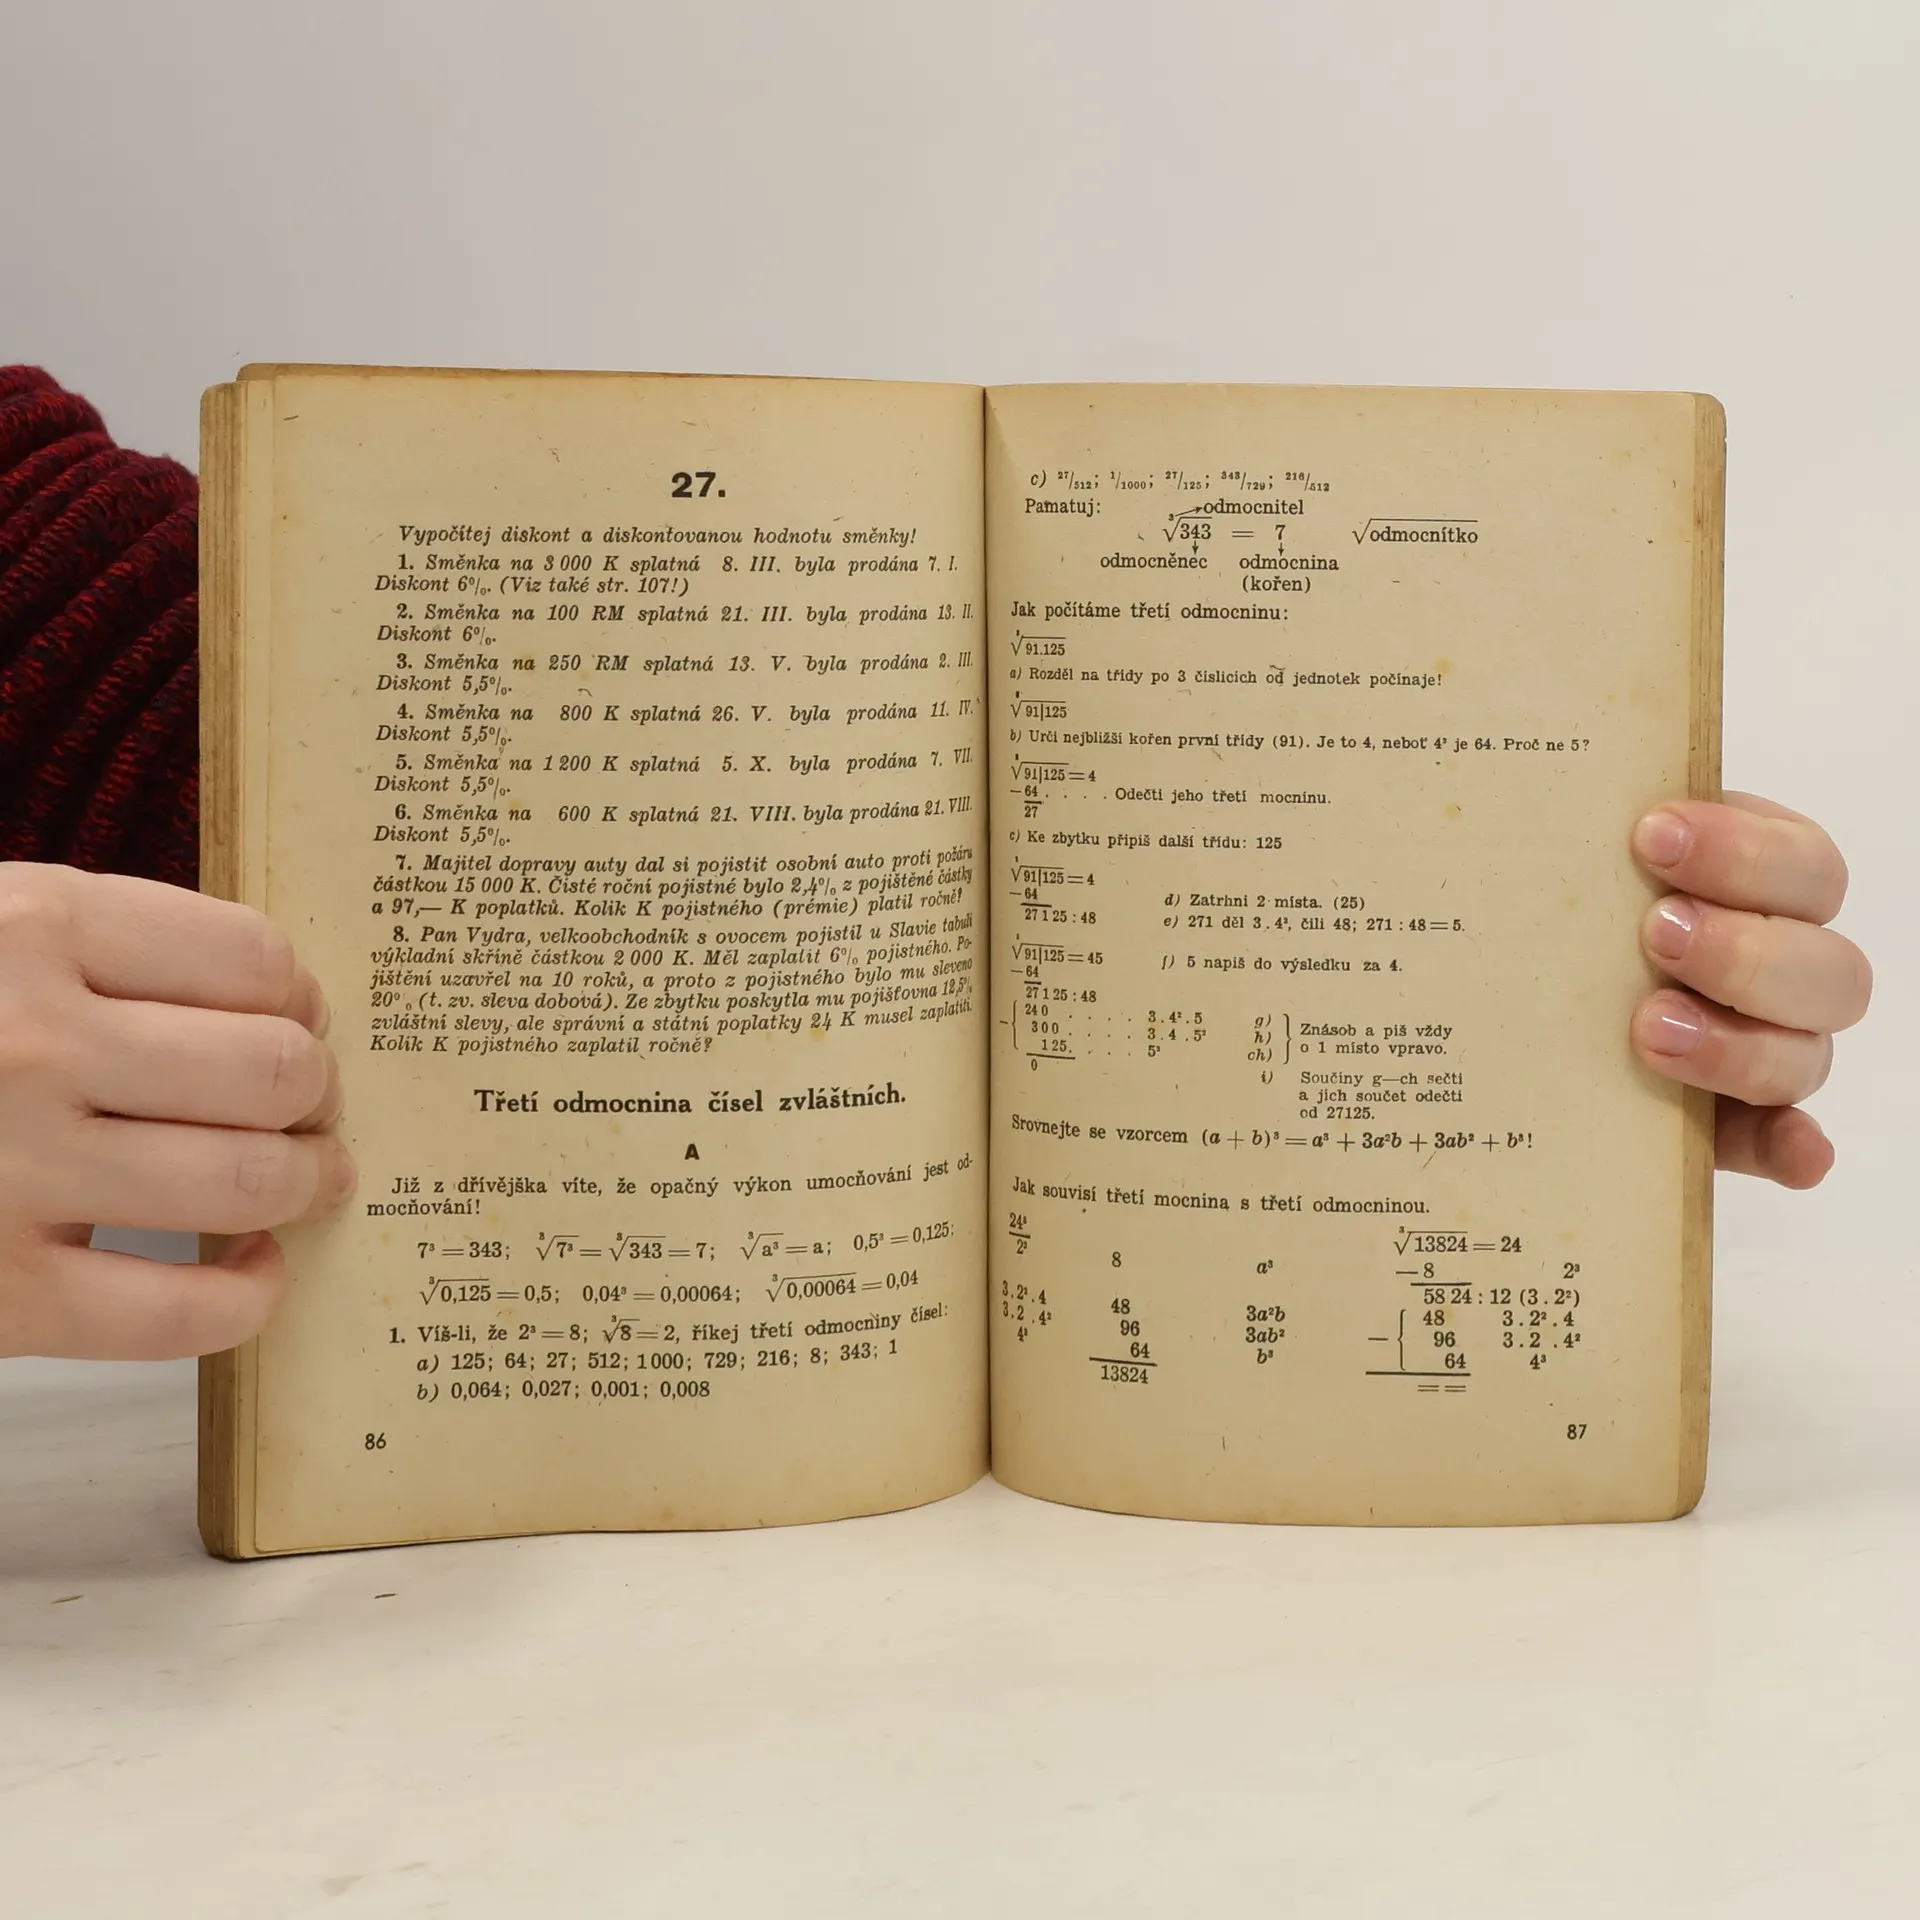 27.
Vypočítej diskont a diskontovanou hodnotu směnky!
1. Směnka na 3 000 K splatná 8. III. byla prodána 7. I.
Diskont 6%. (Viz také str. 107!)
2. Směnka na 100 RM splatná 21. III. byla prodána 13. II.
Diskont 6%.
3. Směnka na 250 RM splatná 13. V. byla prodána 2. III.
Diskont 5,5%.
4. Směnka na 800 K splatná 26. V. byla prodána 11. IV.
Diskont 5,5%.
5. Směnka na 1 200 K splatná 5. X. byla prodána 7. VII.
Diskont 5,5%.
6. Směnka na 600 K splatná 21. VIII. byla prodána 21. VIII.
Diskont 5,5%.
7. Majitel dopravy auty dal si pojistit osobní auto proti požáru
částkou 15 000 K. Čisté roční pojistné bylo 2,4% z pojištěné částky
a 97,— K poplatků. Kolik K pojistného (prémie) platil ročně?
8. Pan Vydra, velkoobchodník s ovocem pojistil u Slavie tabuli
výkladní skříně částkou 2 000 K. Měl zaplatit 6% pojistného. Po-
jištění uzavřel na 10 roků, a proto z pojistného bylo mu sleveno
20% (t. zv. sleva dobová). Ze zbytku poskytla mu pojišťovna 12,5%
zvláštní slevy, ale správní a státní poplatky 24 K musel zaplatiti.
Kolik K pojistného zaplatil ročně?
Třetí odmocnina čísel zvláštních.
A
Již z dřívějška víte, že opačný výkon umocňování jest od-
mocňování!
7³ = 343; ³√7³ = ³√343 = 7; ³√a³ = a; 0,5³ = 0,125;
³√0,125 = 0,5; 0,04³ = 0,00064; ³√0,00064 = 0,04
1. Víš-li, že 2³ = 8; ³√8 = 2, říkej třetí odmocniny čísel:
a) 125; 64; 27; 512; 1000; 729; 216; 8; 343; 1
b) 0,064; 0,027; 0,001; 0,008
86
c) 27/512; 1/1000; 27/125; 343/729; 216/512
Pamatuj: odmocnitel
³√343 = 7 √odmocnítko
odmocněnec odmocnina
(kořen)
Jak počítáme třetí odmocninu:
³√91.125
a) Rozděl na třídy po 3 číslicích od jednotek počínaje!
³√91|125
b) Urči nejbližší kořen první třídy (91). Je to 4, neboť 4³ je 64. Proč ne 5?
³√91|125 = 4
—64 . . . . Odečti jeho třetí mocninu.
27
c) Ke zbytku připiš další třídu: 125
³√91|125 = 4
—64 d) Zatrhni 2 místa. (25)
27 1 25 : 48 e) 271 děl 3 . 4², čili 48; 271 : 48 = 5.
³√91|125 = 45 f) 5 napiš do výsledku za 4.
—64
27 1 25 : 48
— 24 0 . . . . 3 . 4² . 5 g)
30 0 . . . . 3 . 4 . 5² h) Znásob a piš vždy
1 2 5 . . . . 5³ ch) o 1 místo vpravo.
0
i) Součiny g—ch sečti
a jich součet odečti
od 27125.
Srovnejte se vzorcem (a + b)³ = a³ + 3a²b + 3ab² + b³!
Jak souvisí třetí mocnina s třetí odmocninou.
24³ ³√13824 = 24
2³ 8 a³ —8 2³
58 24 : 12 (3 . 2²)
3 . 2² . 4 48 3a²b 48 3 . 2² . 4
3 . 2 . 4² 96 3ab² — 96 3 . 2 . 4²
4³ 64 b³ 64 4³
13824 = =
87